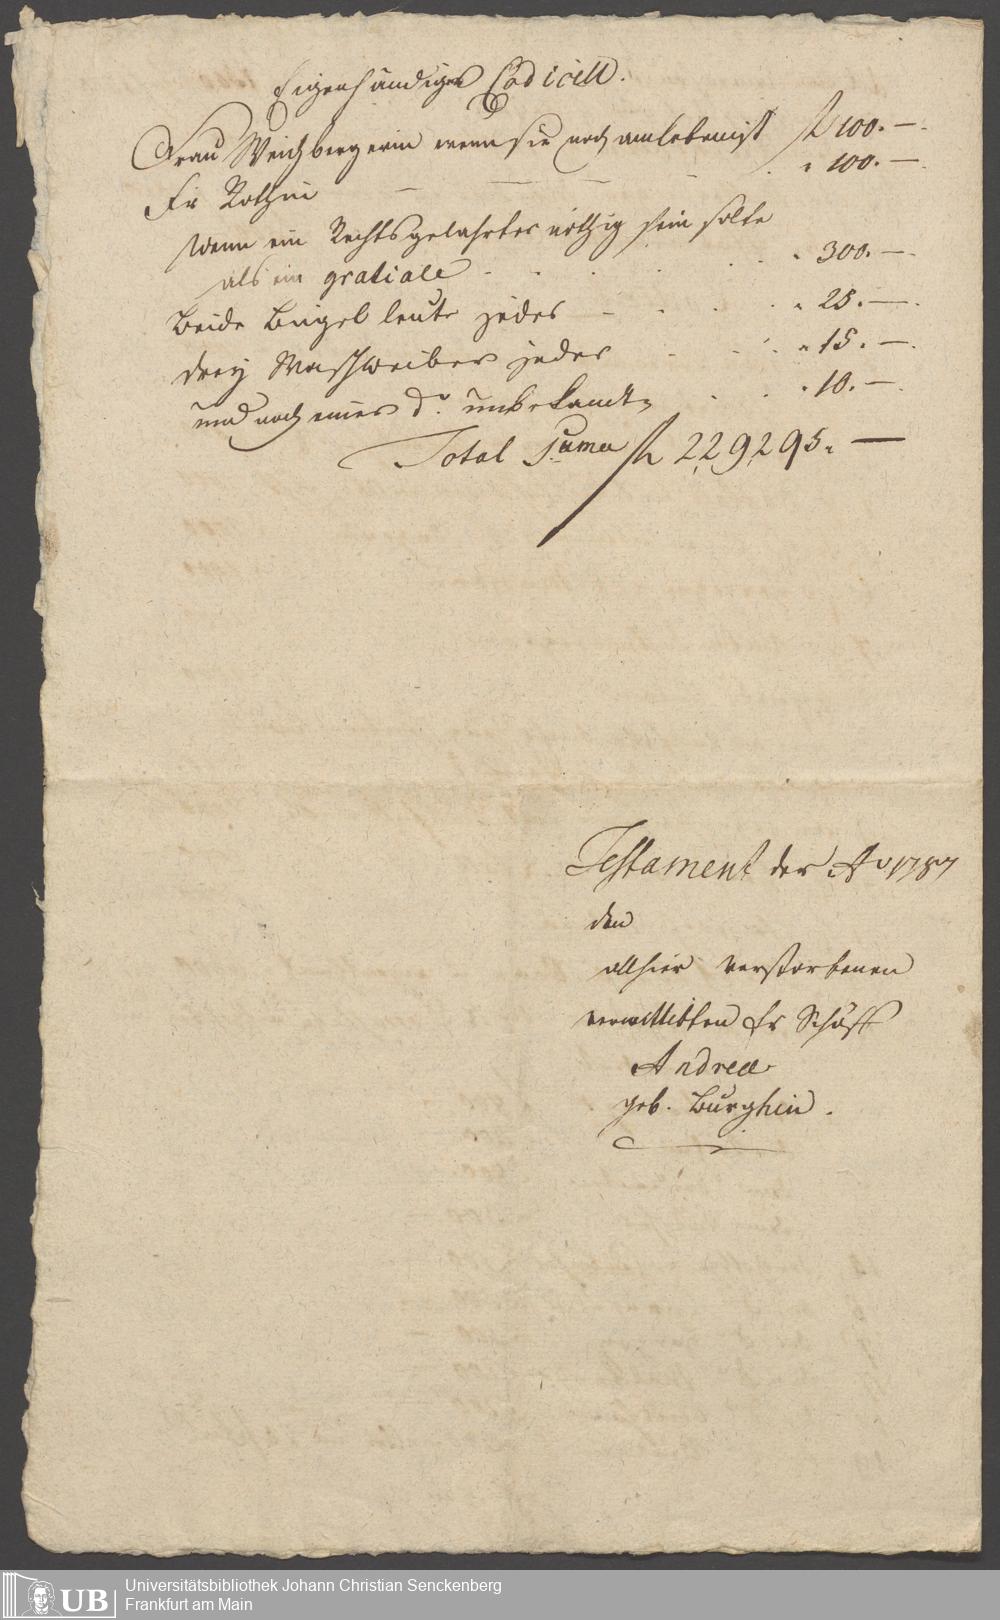 Eigenhändiges Codicill.
Frau Weichbergerin wenn sie noch am leben ist f 100. —
Fr Rothin — — — — " 100. —
Wenn ein Rechtsgelahrter nöthig sein solte
als ein gratiale - - - " 300. —
Beide Bügel leute jedes - - " 25. —
drey Waschweiber jedes - - " 15. —
und noch eines do. unbekandt " 10. —
Total Suma f 229295. —
Testament der Ao 1787
den
allhier verstorbenen
verwittibten Fr Schöff
Andreæ
geb. Burghin.
UB Universitätsbibliothek Johann Christian Senckenberg
Frankfurt am Main